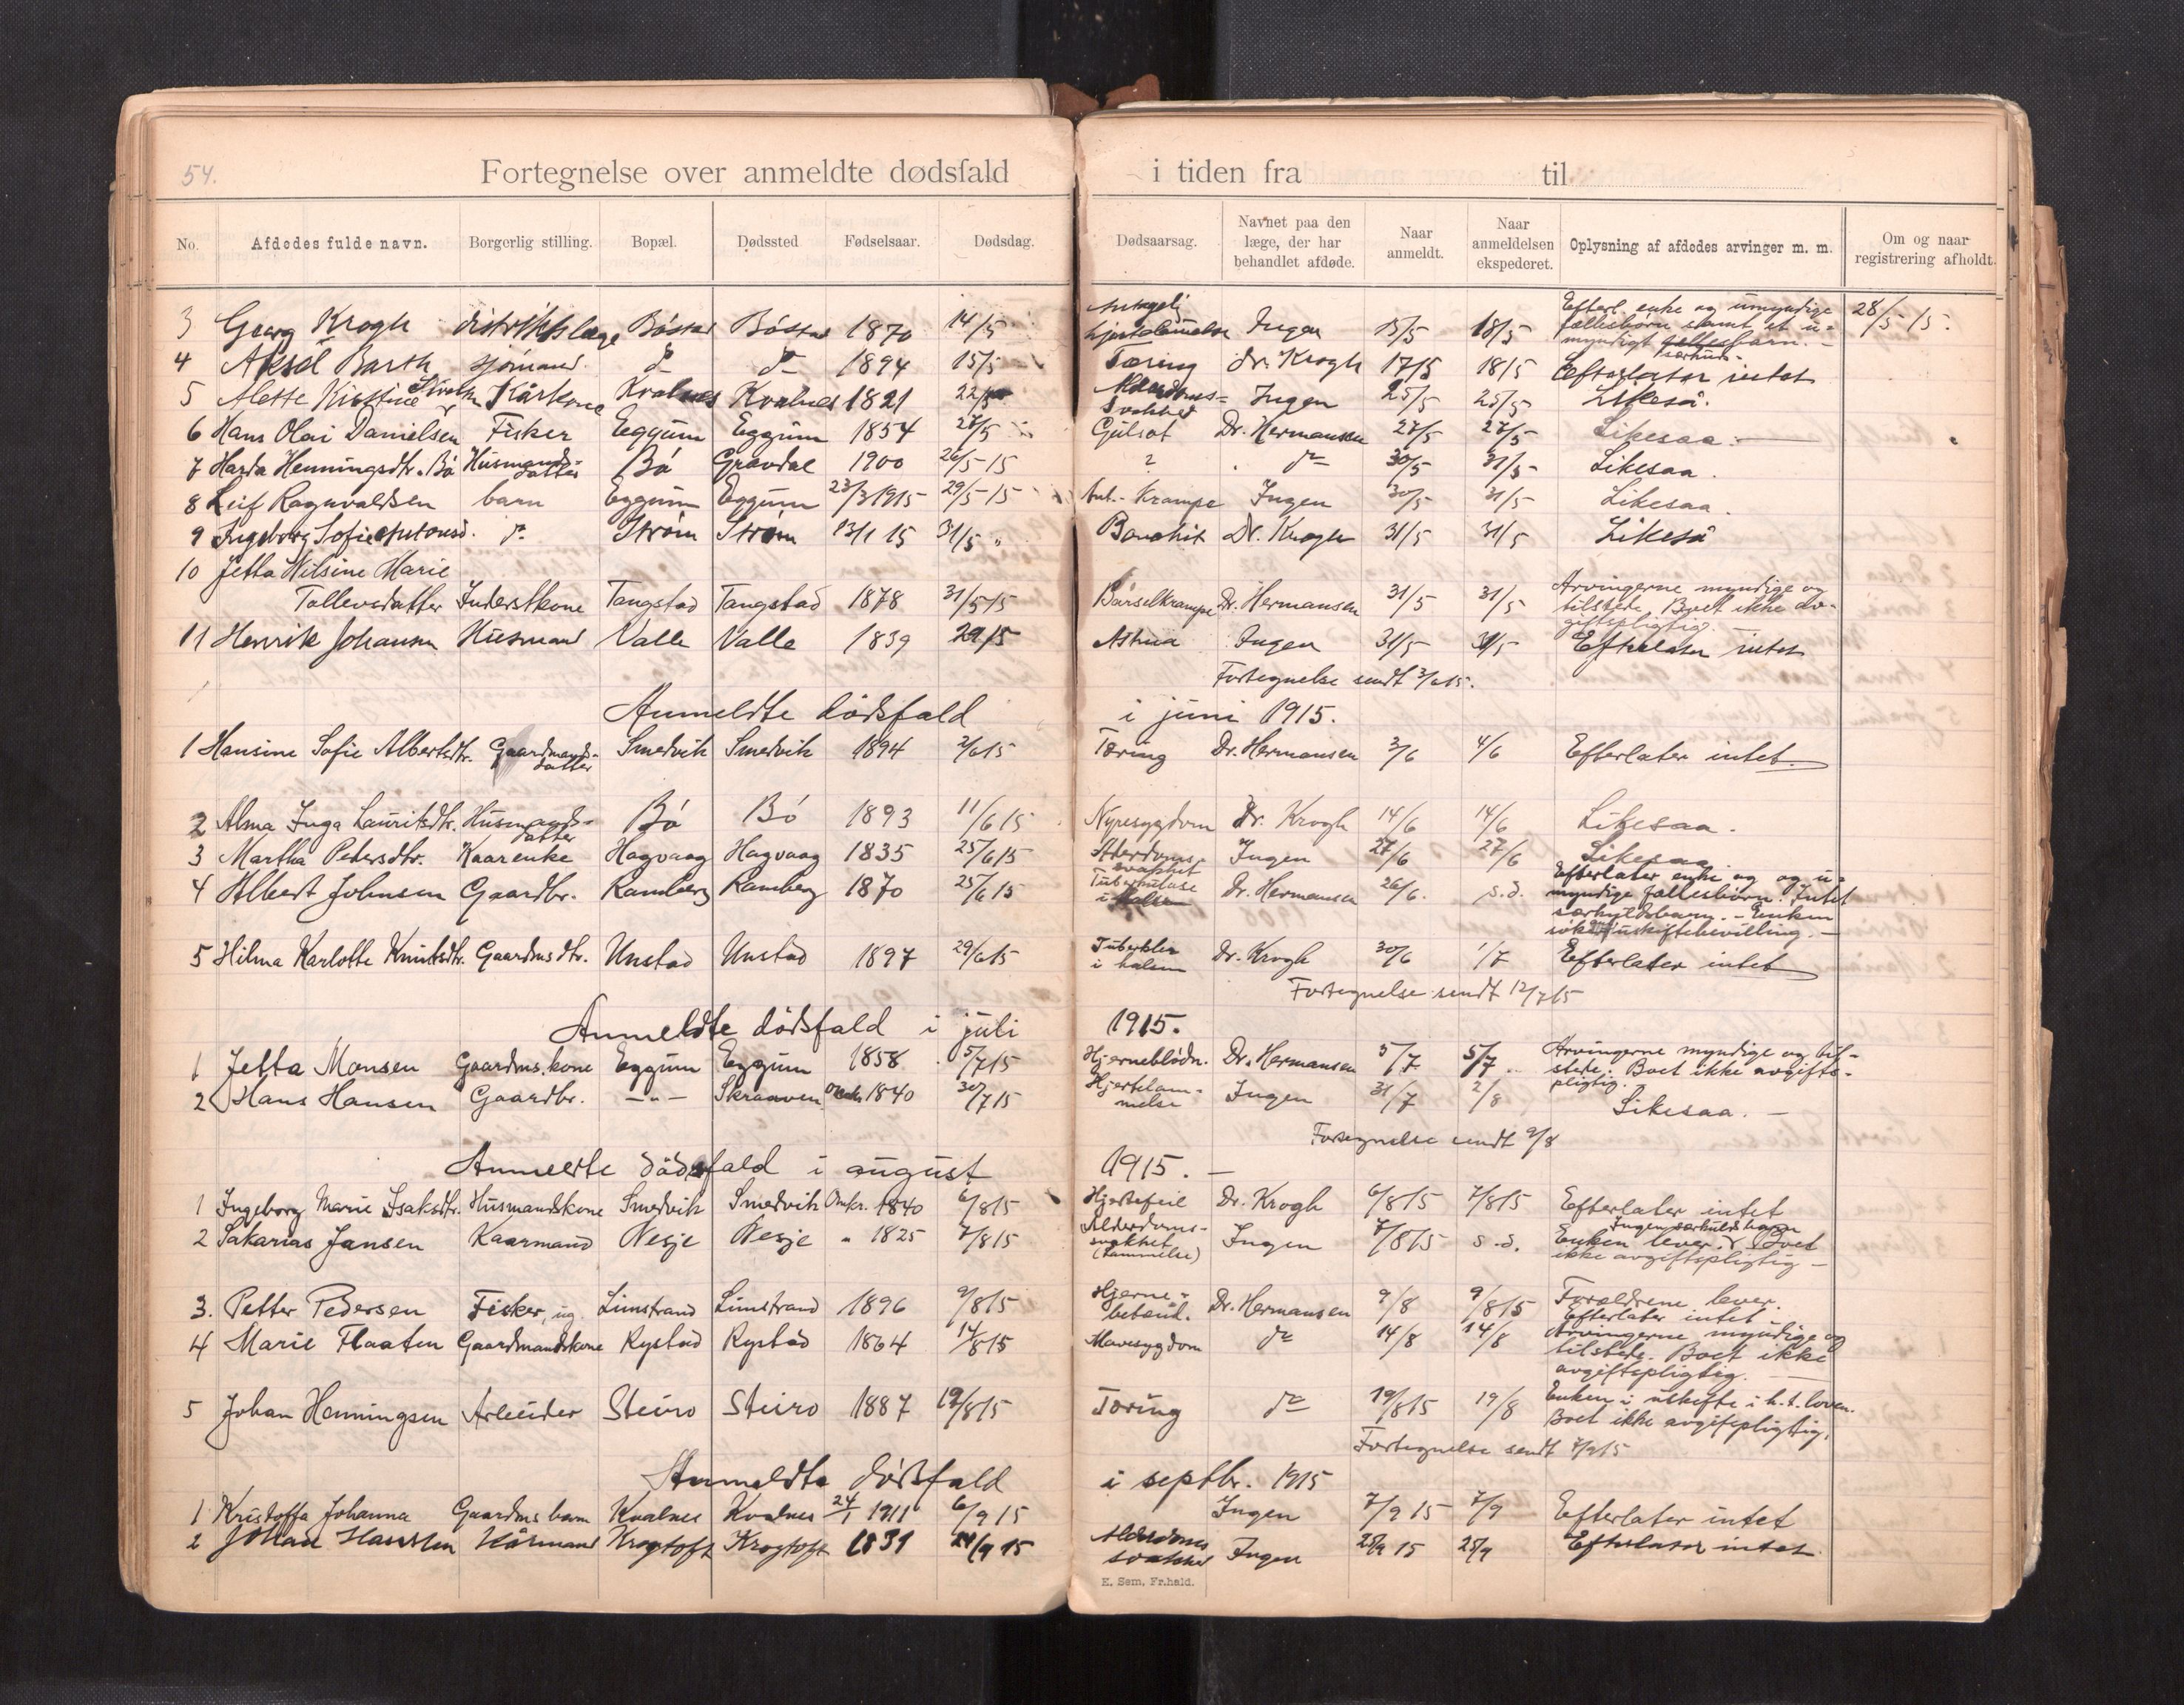 54.
Fortegnelse over anmeldte dødsfald i tiden fra til
No. Afdødes fulde navn. Borgerlig stilling. Bopæl. Dødssted Fødselsaar. Dødsdag. Dødsaarsag. Navnet paa den læge, der har behandlet afdøde. Naar anmeldt. Naar anmeldelsen ekspederet. Oplysning af afdødes arvinger m. m. Om og naar registrering afholdt.
3 Georg Krogh distriktslæge Bøstad Bøstad 1870 14/5 Antagelig hjertelammelse Ingen 15/5 18/5 Efterl. enke og umyndige fællesbørn samt et umyndigt særkuds- barn. - 28/5 15.
4 Aksel Barth sjømand. do do 1894 15/5 Tæring dr. Krogh 17/5 18/5 Efterlater intet
5 Alette Kristine Kårkone Kvalnes Kvalnes 1821 22/5 Alderdoms- svakhed Ingen 25/5 25/5 Likeså.
6 Hans Olai Danielsen Fisker Eggum Eggum 1854 27/5 Gulsot Dr. Hermansen 27/5 27/5 Likesaa.
7 Harda Henningsdtr. Bø Husmands- datter Bø Gravdal 1900 26/5-15 ? do 30/5 31/5 Likesaa.
8 Leif Ragnvaldsen barn Eggum Eggum 23/3 1915 29/5-15 Ant. Krampe Ingen 30/5 31/5 Likesaa.
9 Ingeborg Sofie Antonsd. do Strøm Strøm 13/1 15 31/5 " Bronchit Dr. Krogh 31/5 31/5 Likeså
10 Jetta Nilsine Marie
Tollevsdatter Inderstkone Tangstad Tangstad 1878 31/5 15 Barselkrampe Dr. Hermansen 31/5 31/5 Arvingerne myndige og tilstede. Boet ikke avgiftspligtig.
11 Henrik Johansen Husmand Valle Valle 1839 29/5 Astma Ingen 31/5 31/5 Efterlater intet
Fortegnelse sendt 3/6 15.
Anmeldte dødsfald i juni 1915.
1 Hansine Sofie Albertsdtr. Gaardmands- datter Smedvik Smedvik 1894 2/6 15 Tæring Dr. Hermansen 3/6 4/6 Efterlater intet.
2 Alma Inga Lauritsdtr. Husmands- datter Bø Bø 1893 11/6 15 Nyresygdom Dr. Krogh 14/6 14/6 Likesaa.
3 Martha Petersdtr. Kaarenke Hagvaag Hagvaag 1835 25/6 15 Alderdoms- svakhet Ingen 27/6 27/6 Likesaa
4 Albert Johnsen Gaardbr. Ramberg Ramberg 1870 25/6 15 Tuberkulose i halsen Dr. Hermansen 26/6. s.d. Efterlater enke og og u- myndige fællesbørn. Intet særkuldsbarn. - Enken søker uskiftebevilling. -
5 Hilma Karlotte Knutsdtr. Gaardmsdtr. Unstad Unstad 1897 29/6 15 Tuberkler i halsen Dr. Krogh 30/6 1/7 Efterlater intet
Fortegnelse sendt 12/7 15
Anmeldte dødsfald i juli 1915.
1 Jetta Monsen Gaardms.kone Eggum Eggum 1858 5/7 15 Hjerneblødn. Dr. Hermansen 5/7 5/7 Arvingerne myndige og til- stede. Boet ikke avgifts- pligtig.
2 Hans Hansen Gaardbr. -"- Skraaven Omkr 1840 30/7 15 Hjertelam- melse Ingen 31/7 2/8 Likesaa. -
Fortegnelse sendt 9/8
Anmeldte dødsfald i august 1915. -
1 Ingeborg Marie Isaksdtr. Husmandskone Smedvik Smedvik Omkr. 1840 6/8 15 Hjertefeil Dr. Krogh 6/8 15 7/8 15 Efterlater intet
2 Sakarias Jansen Kaarmand Nesje Nesje " 1825 7/8 15 Alderdoms- svakhet (Lammelse) Ingen 7/8 15 s.d. Enken lever. Ingen særkuldsbarn Boet ikke avgiftspligtig -
3. Petter Pedersen Fisker, ug Limstrand Limstrand 1896 9/8 15 Hjerne- betænd. Dr. Hermansen 9/8 9/8 15 Forældrene lever. Efterlater intet
4 Marie Flaaten Gaardmandskone Rystad Rystad 1864 14/8 15 Mavesygdom do 14/8 14/8 Arvingerne myndige og tilstede. Boet ikke avgiftspligtig.
5 Johan Henningsen Arbeider Steiro Steiro 1887 19/8 15 Tæring do 19/8 15 19/8 Enken i uskifte i h.t. loven. Boet ikke avgiftspligtig.
Fortegnelse sendt 7/9 15
Anmeldte dødsfald i septbr. 1915
1 Kristoffa Johanna Gaardms barn Kvalnes Kvalnes 24/1 1911 6/9 15 Ingen 7/9 15 7/9 Efterlater intet
2 Johan Hansen Kårmand Krogtoft Krogtoft 1831 24/9 15 Alderdoms svakhed Ingen 25/9 15 25/9 Efterlater intet.
E. Sem, Fr.hald.